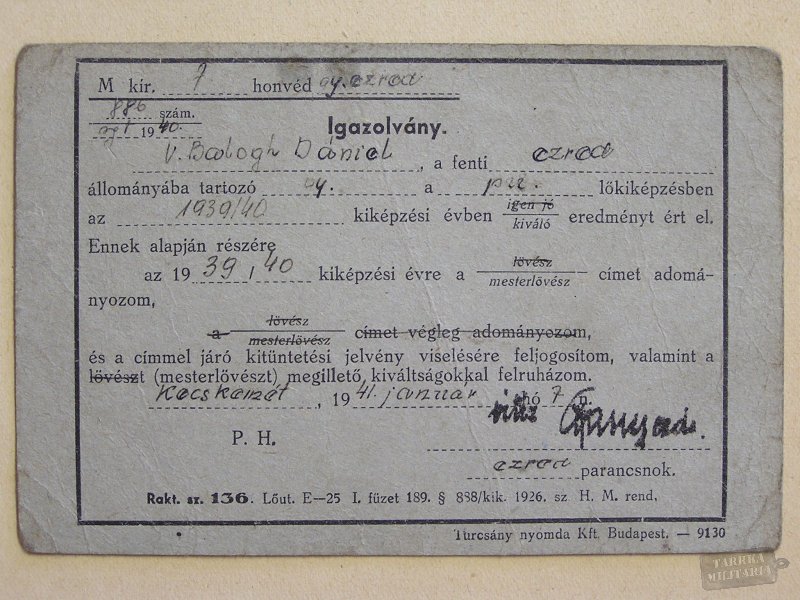 M kir. 7 honvéd gy. ezred
886 szám.
1940.
Igazolvány.
v. Balogh Dániel, a fenti ezred
állományába tartozó gy. a pu. lőkiképzésben
az 1939/40 kiképzési évben igen jó kiváló eredményt ért el.
Ennek alapján részére
az 1939/40 kiképzési évre a lövész mesterlövész címet adomá-
nyozom,
a lövész mesterlövész címet végleg adományozom,
és a címmel járó kitüntetési jelvény viselésére feljogosítom, valamint a
lövészt (mesterlövészt) megillető kiváltságokkal felruházom.
Kecskemét, 1941. január hó 7 n.
vitéz
P. H.
ezred parancsnok.
Rakt. sz. 136. Lőut. E—25 I. füzet 189. § 888/kik. 1926. sz H. M. rend.
Turcsány nyomda Kft. Budapest. — 9130
TARRKA
MILITARIA